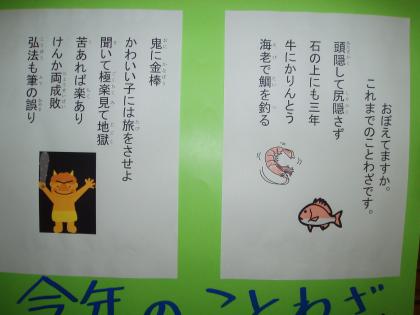 おぼえてますか。
これまでのことわざです。
頭隠して尻隠さず
石の上にも三年
牛にかりんとう
海老で鯛を釣る
鬼に金棒
かわいい子には旅をさせよ
聞いて極楽見て地獄
苦あれば楽あり
けんか両成敗
弘法も筆の誤り
今年のことわざ